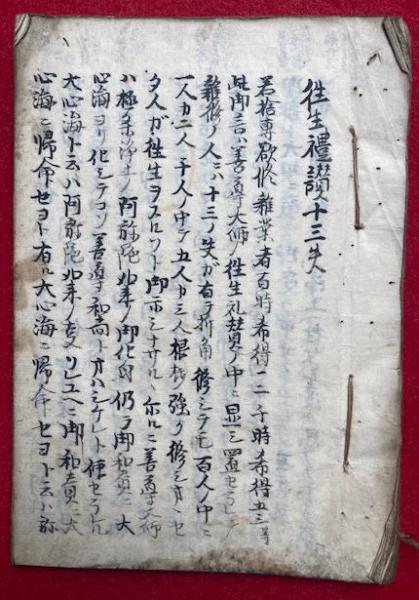 往生禮讃十三失
若捨專欲修雜業者百時希得一二千時希得五三等
此御言ハ善導大師ノ往生礼賛ノ中ニ显シ置セラレテ
雜修ノ人ニハ十三ノ失ガ有ラ折角修シテモ百人ノ中ニ
一人カ二人千人ノ中デ五人カ三人根機強ク修シ
タ人ガ往生ヲスルソト御示シナサル尓ルニ善導大師
ハ極楽浄土ノ阿弥陀如来ノ御化身仍テ御和賛ニ大
心海ヨリ化シテコソ善導和尚トオハシケレト
大心海ト云ハ阿弥陀如来ノ御和賛ニ大
心海ニ帰命セヨト有ル大心海ニ帰命セヨト云ハ弥